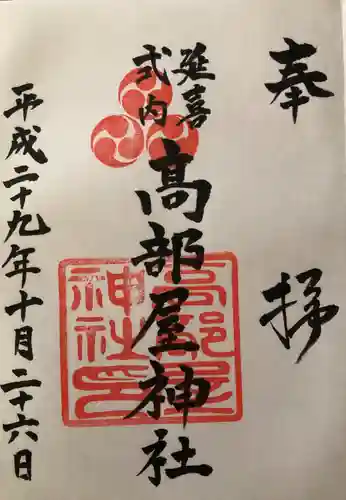 奉拝
延喜
式内
高部屋神社
高部屋
神社印
平成二十九年十月二十六日